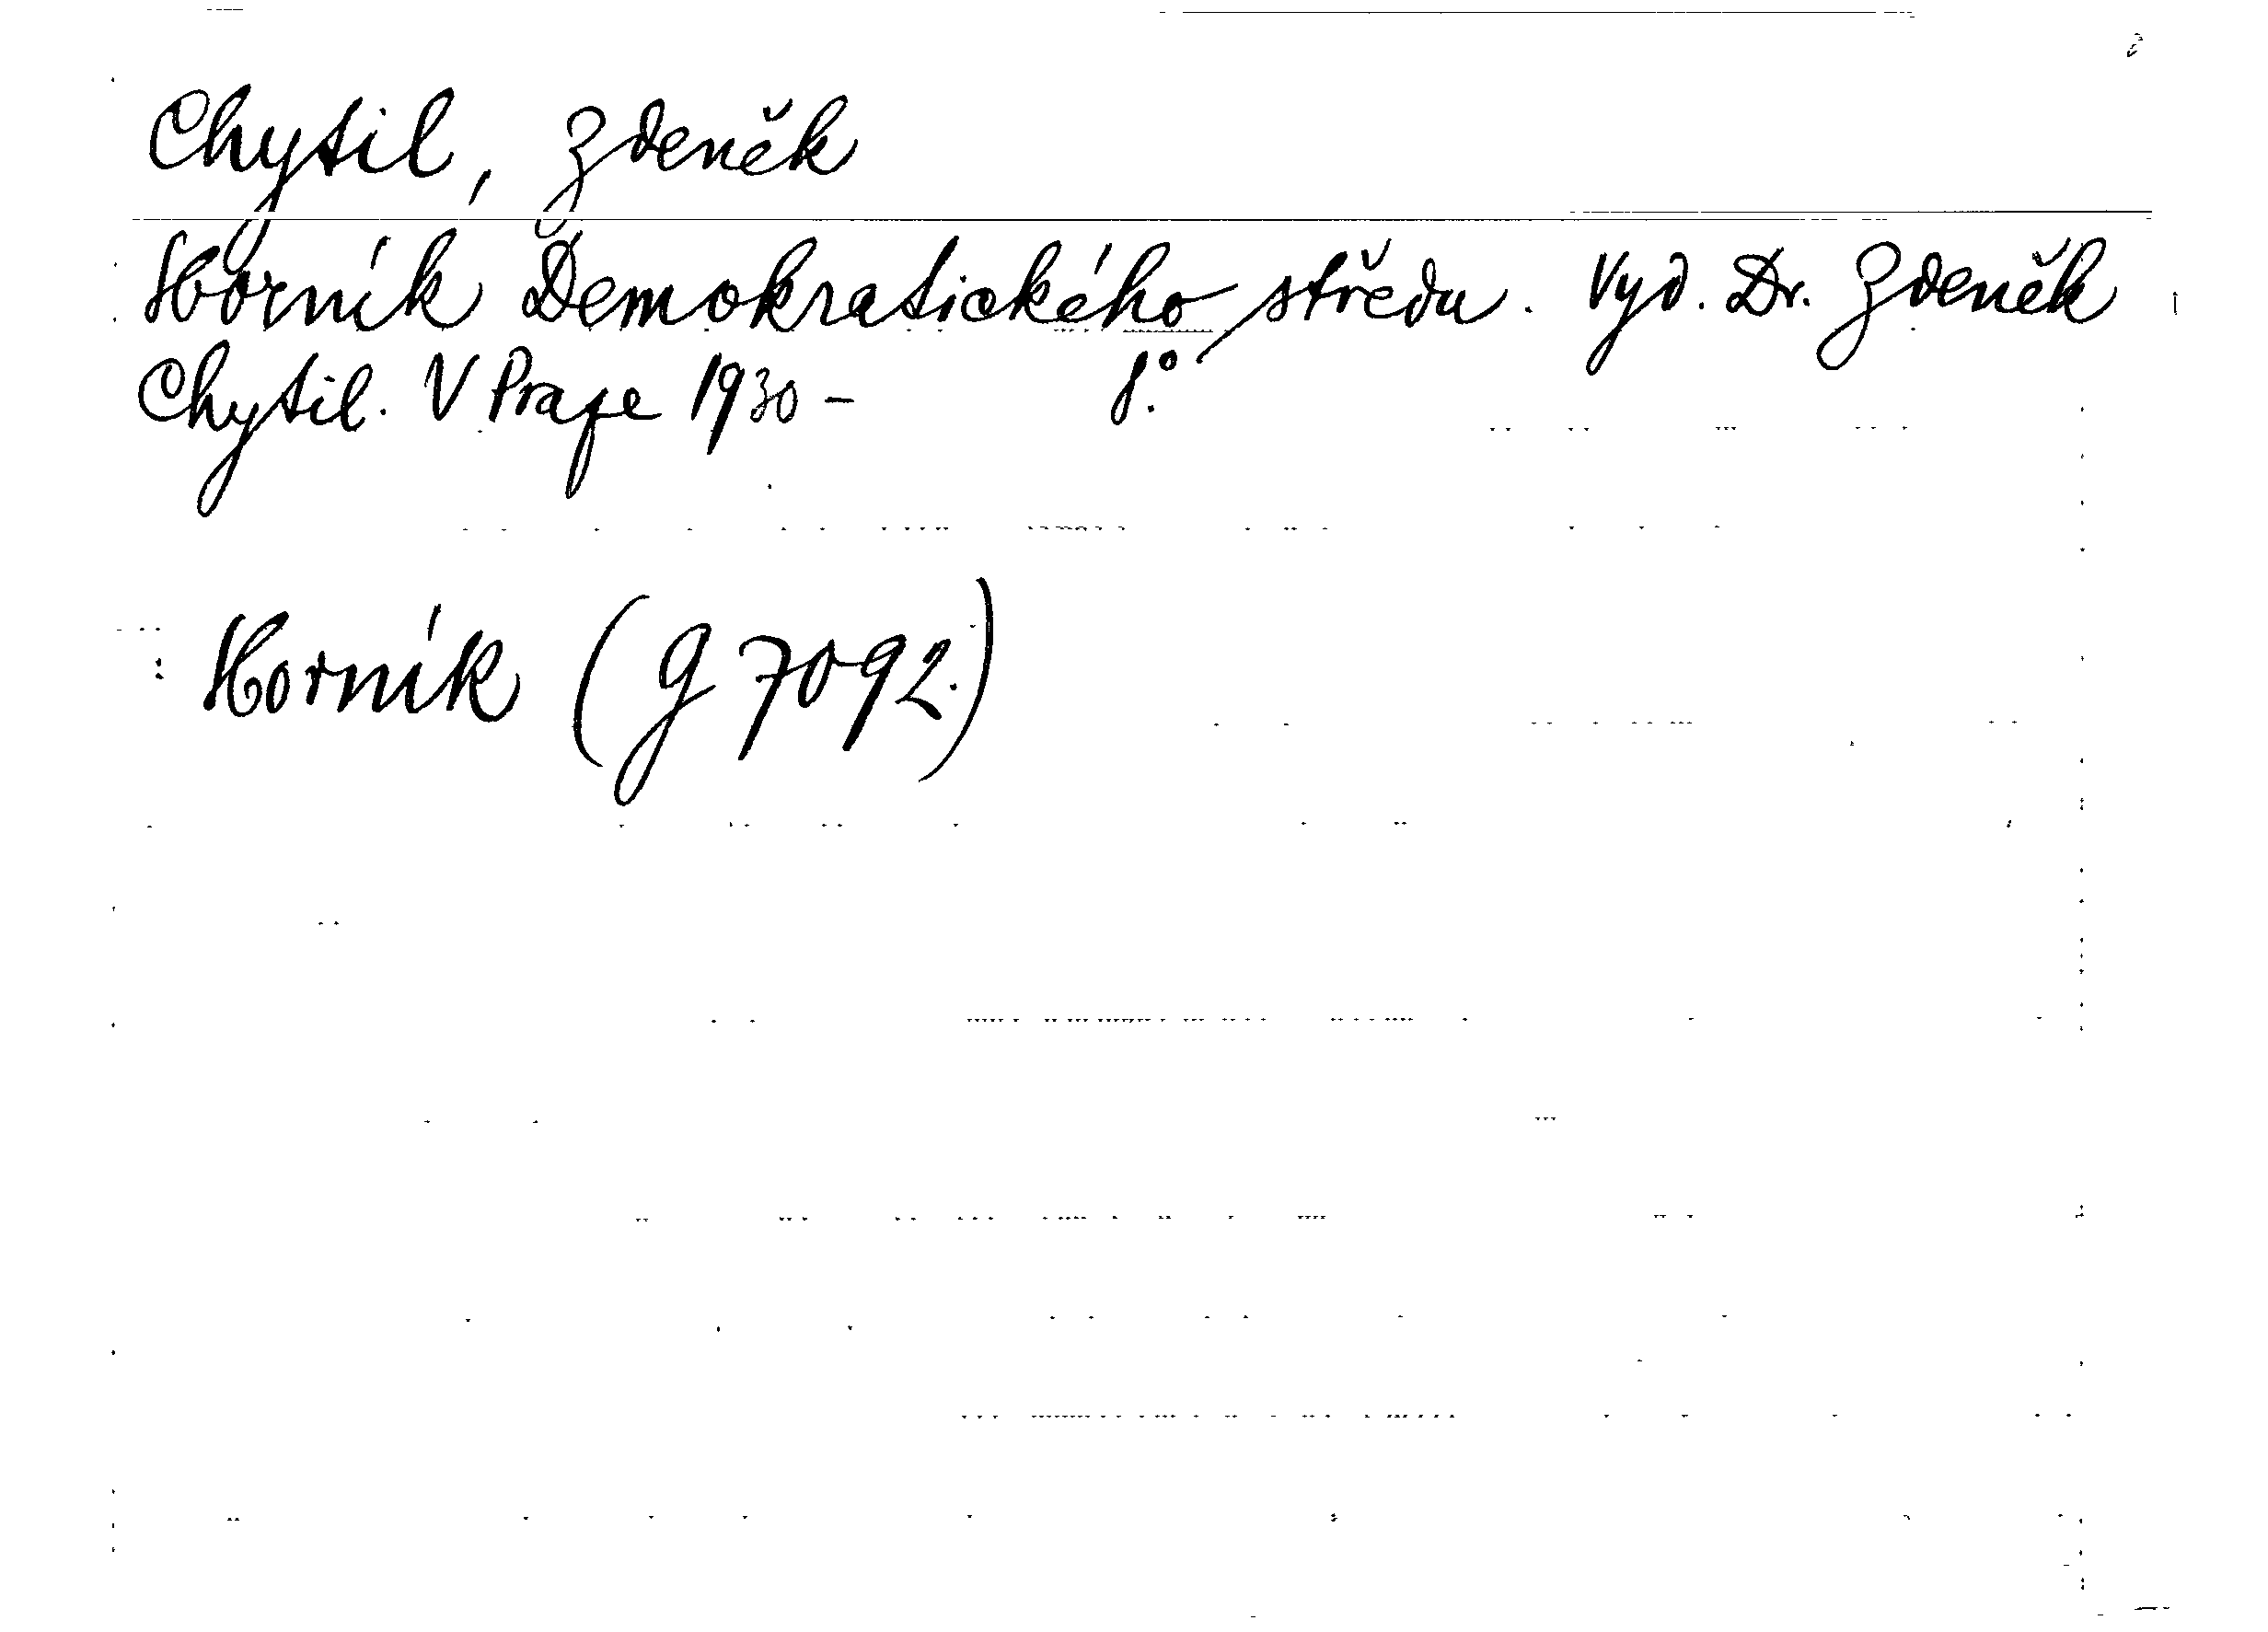 Chytil, Zdeněk
Horník Demokratického středu. Vyd. Dr. Zdeněk
Chytil. V Praze 1930 - 8.º
Horník (G 7092.)